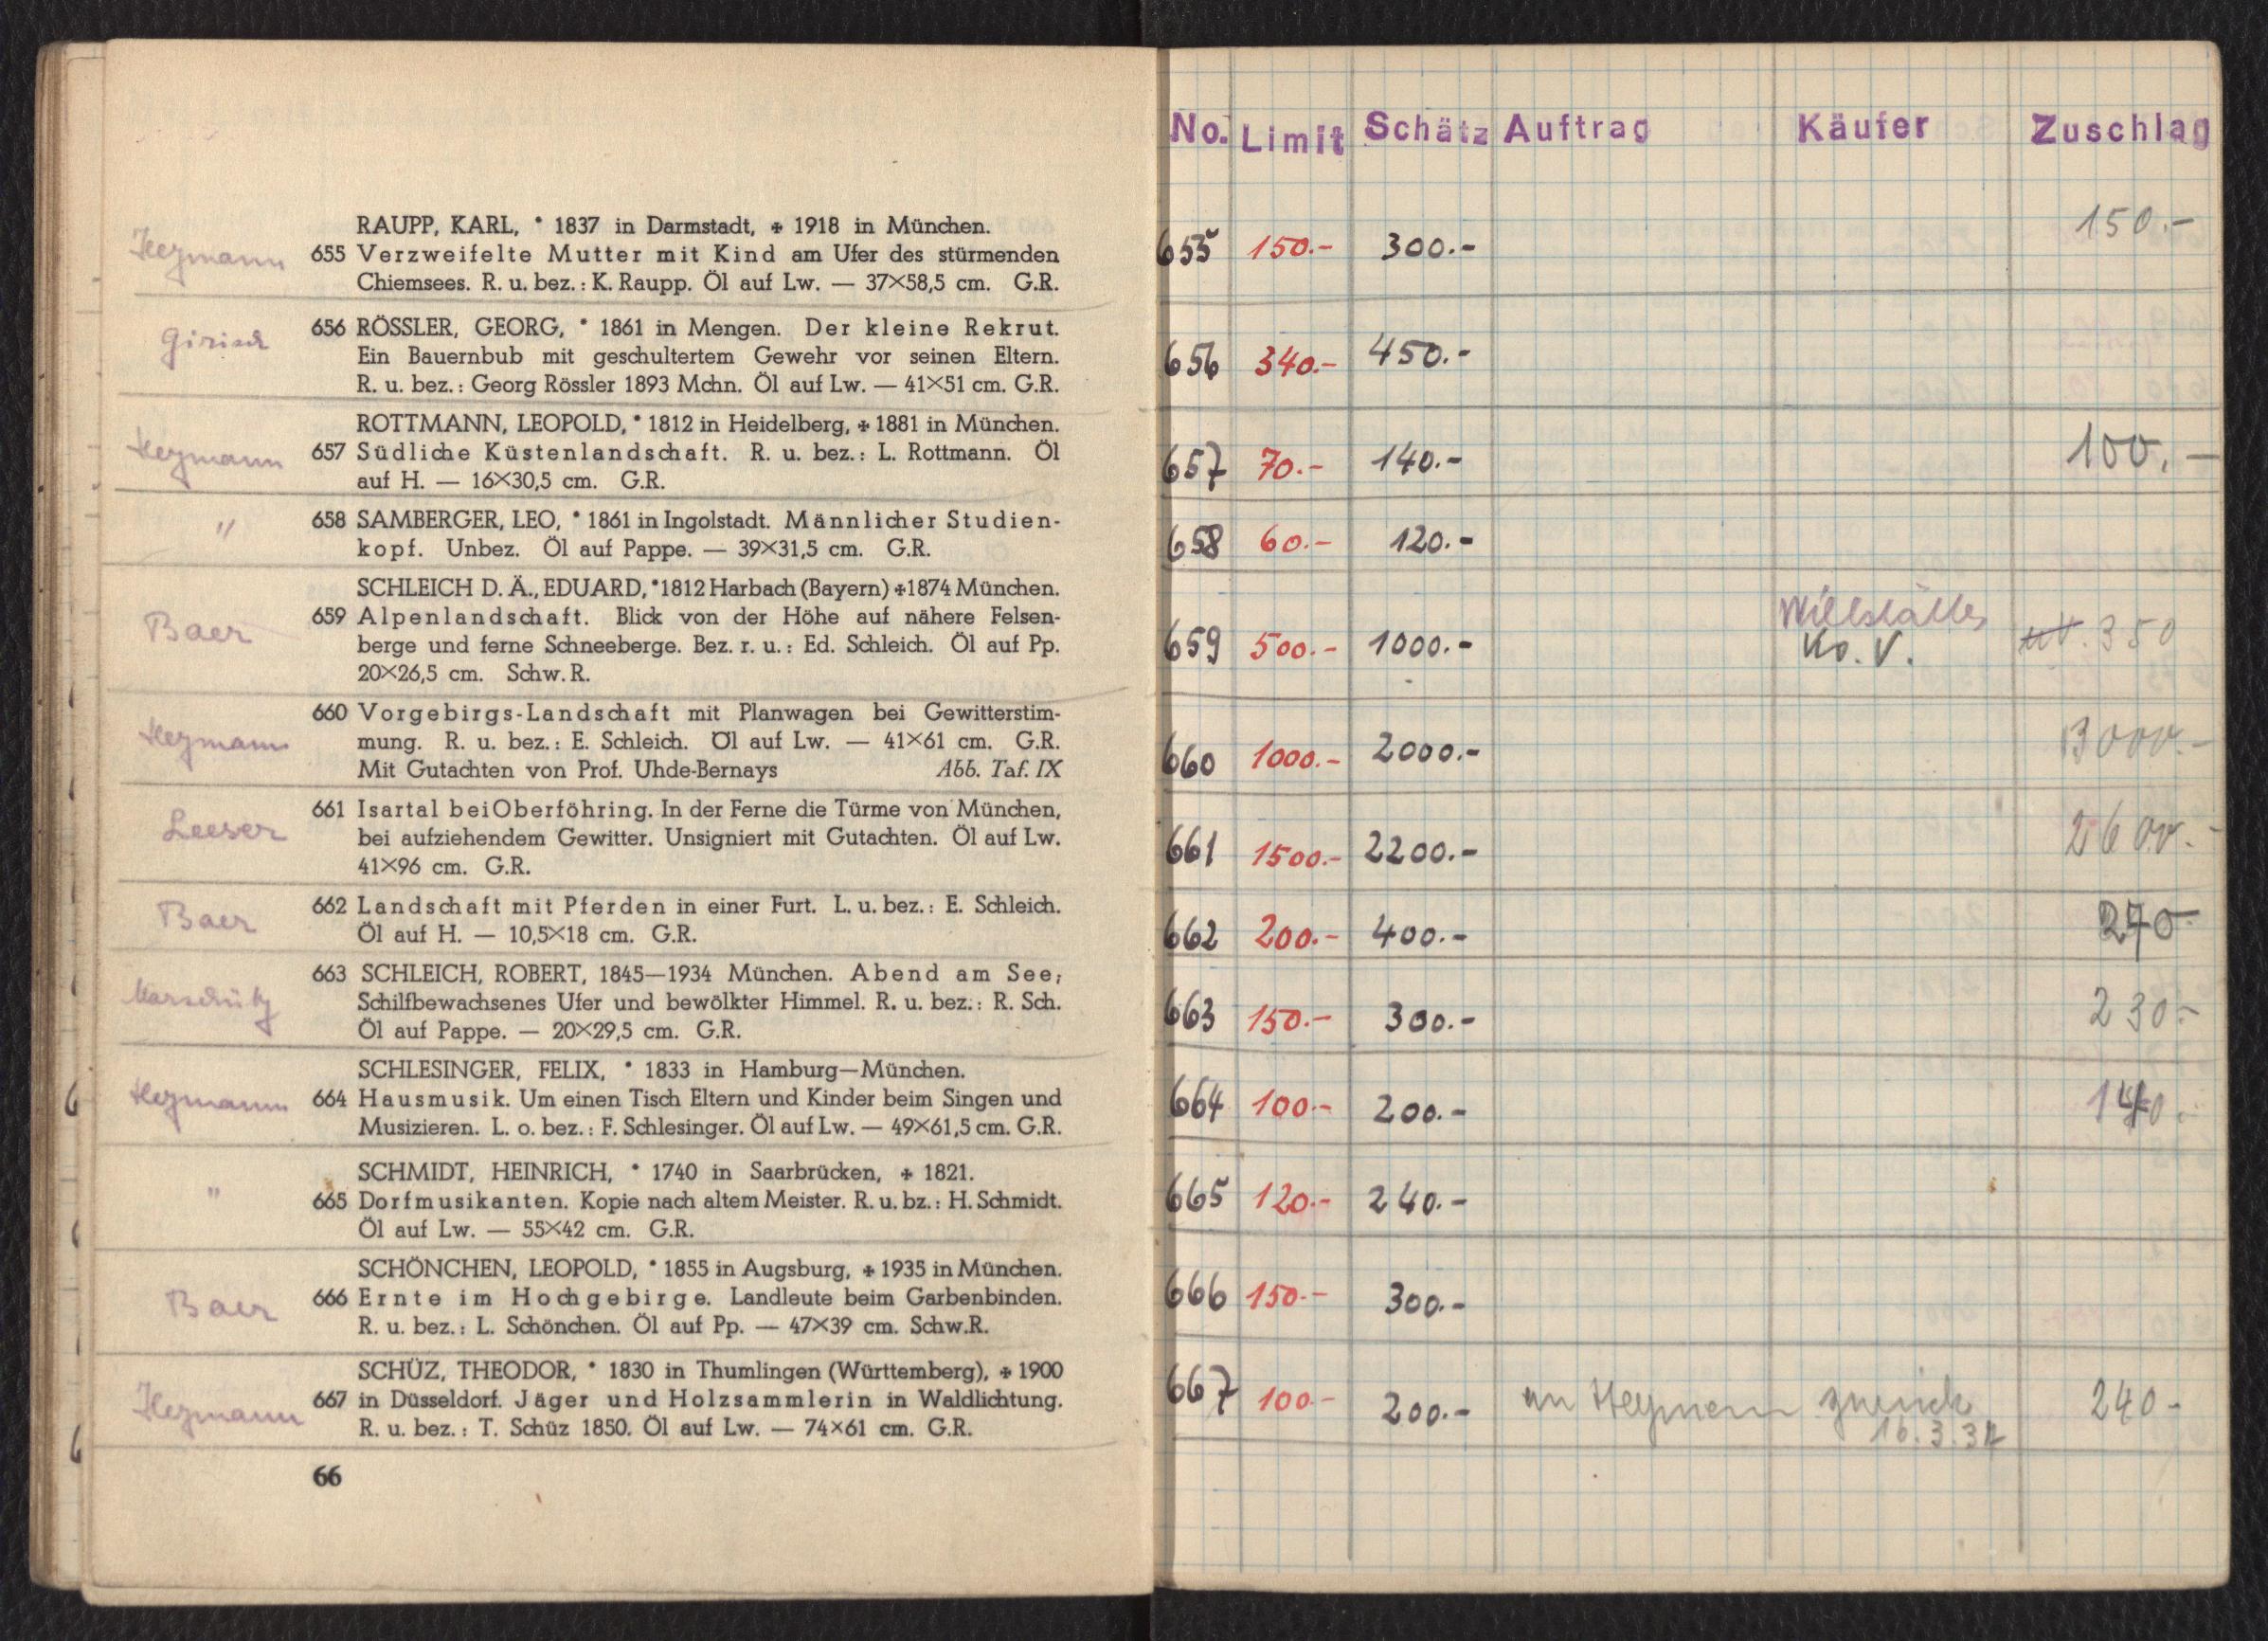 RAUPP, KARL, * 1837 in Darmstadt, ✠ 1918 in München.
Heymann 655 Verzweifelte Mutter mit Kind am Ufer des stürmenden
Chiemsees. R. u. bez.: K. Raupp. Öl auf Lw. — 37×58,5 cm. G.R.
656 RÖSSLER, GEORG, * 1861 in Mengen. Der kleine Rekrut.
Ein Bauernbub mit geschultertem Gewehr vor seinen Eltern.
R. u. bez.: Georg Rössler 1893 Mchn. Öl auf Lw. — 41×51 cm. G.R.
ROTTMANN, LEOPOLD, * 1812 in Heidelberg, ✠ 1881 in München.
Heymann 657 Südliche Küstenlandschaft. R. u. bez.: L. Rottmann. Öl
auf H. — 16×30,5 cm. G.R.
" 658 SAMBERGER, LEO, * 1861 in Ingolstadt. Männlicher Studien-
kopf. Unbez. Öl auf Pappe. — 39×31,5 cm. G.R.
SCHLEICH D. Ä., EDUARD, *1812 Harbach (Bayern) ✠1874 München.
Baer 659 Alpenlandschaft. Blick von der Höhe auf nähere Felsen-
berge und ferne Schneeberge. Bez. r. u.: Ed. Schleich. Öl auf Pp.
20×26,5 cm. Schw. R.
660 Vorgebirgs-Landschaft mit Planwagen bei Gewitterstim-
Heymann mung. R. u. bez.: E. Schleich. Öl auf Lw. — 41×61 cm. G.R.
Mit Gutachten von Prof. Uhde-Bernays Abb. Taf. IX
661 Isartal bei Oberföhring. In der Ferne die Türme von München,
Leeser bei aufziehendem Gewitter. Unsigniert mit Gutachten. Öl auf Lw.
41×96 cm. G.R.
Baer 662 Landschaft mit Pferden in einer Furt. L. u. bez.: E. Schleich.
Öl auf H. — 10,5×18 cm. G.R.
663 SCHLEICH, ROBERT, 1845—1934 München. Abend am See;
Marschütz Schilfbewachsenes Ufer und bewölkter Himmel. R. u. bez.: R. Sch.
Öl auf Pappe. — 20×29,5 cm. G.R.
SCHLESINGER, FELIX, * 1833 in Hamburg—München.
Heymann 664 Hausmusik. Um einen Tisch Eltern und Kinder beim Singen und
Musizieren. L. o. bez.: F. Schlesinger. Öl auf Lw. — 49×61,5 cm. G.R.
SCHMIDT, HEINRICH, * 1740 in Saarbrücken, ✠ 1821.
" 665 Dorfmusikanten. Kopie nach altem Meister. R. u. bz.: H. Schmidt.
Öl auf Lw. — 55×42 cm. G.R.
SCHÖNCHEN, LEOPOLD, * 1855 in Augsburg, ✠ 1935 in München.
Baer 666 Ernte im Hochgebirge. Landleute beim Garbenbinden.
R. u. bez.: L. Schönchen. Öl auf Pp. — 47×39 cm. Schw.R.
SCHÜZ, THEODOR, * 1830 in Thumlingen (Württemberg), ✠ 1900
Heymann 667 in Düsseldorf. Jäger und Holzsammlerin in Waldlichtung.
R. u. bez.: T. Schüz 1850. Öl auf Lw. — 74×61 cm. G.R.
66
No. Limit Schätz Auftrag Käufer Zuschlag
655 150.- 300.- 150.-
656 340.- 450.-
657 70.- 140.- 100.-
658 60.- 120.-
659 500.- 1000.- Ko. V. 350
660 1000.- 2000.- 3000.-
661 1500.- 2200.- 2600.-
662 200.- 400.- 270
663 150.- 300.- 230.-
664 100.- 200.- 140.
665 120.- 240.-
666 150.- 300.-
667 100.- 200.- an Heymann zurück 240.-
16.3.